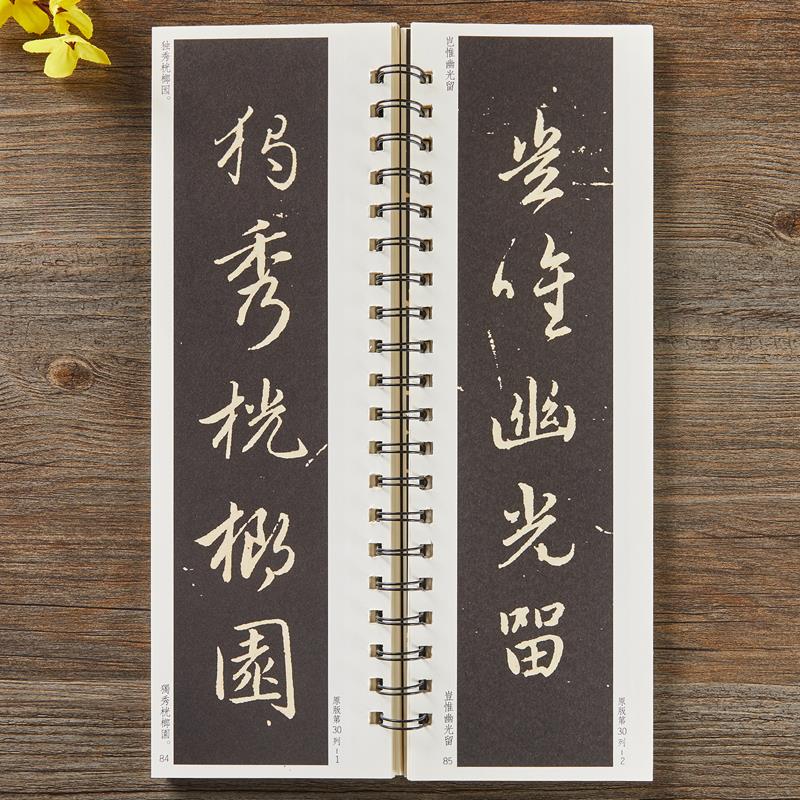 独秀桄榔园。
獨秀桄榔園
獨秀桄榔園。
84
原版第30列-1
岂惟幽光留
豈惟幽光留
豈惟幽光留
85
原版第30列-2